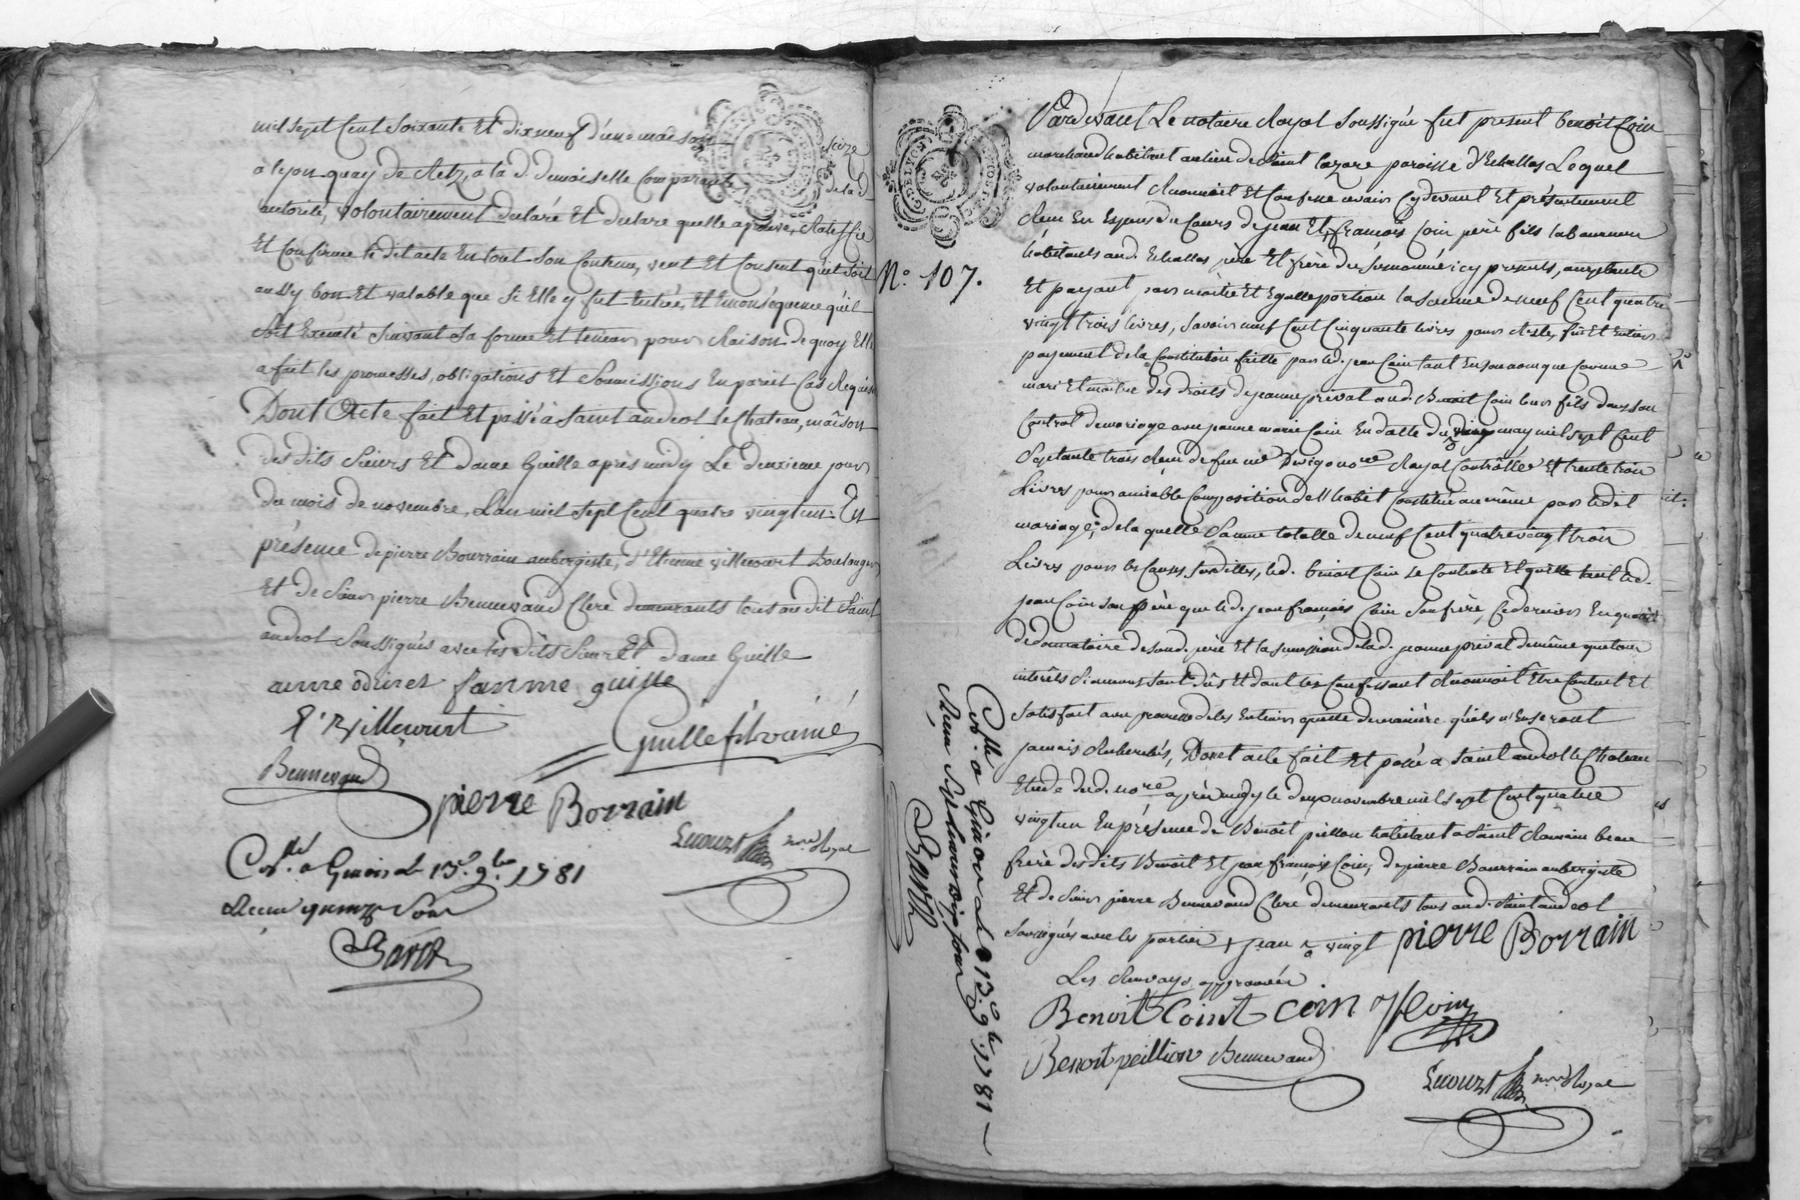 mil sept Cent Soixante Et dixneuf d'une maison Size
à lyon quay de Retz, a la d. demoiselle Comparante de la d.
autorité, volontairement declaré Et declare quelle aprouve, Ratiffie
Et Confirme le dit acte En tout Son Contenu, veut Et Consent qu'il Soit
aussy bon Et valable que Si Elle y fut Entrée, Et Enconséquence qu'il
Soit Executé Suivant Sa forme Et teneur pour Raison de quoy Elle
a fait les promesses, obligations Et Soumissions En pareil Cas Requises
Dont Acte fait Et passé à Saint andeol le Chateau, maison
des dits Sieurs Et dame Guille après midy Le deuxieme jour
du mois de novembre, L'an mil Sept Cent quatre vingt un. En
présence de pierre Bourrain aubergiste, d'Etienne villecourt Boulanger
Et de Sieur pierre Bennevaud Clerc demeurants tous au dit Saint
andeol Soussignés avec les dits Sieur Et dame Guille
fanme guille
E Villecourt Guille fils ainé
Bennevaud
pierre Borrain
Lecourt nore Royal
Collé. a Givors le 13e. 9bre 1781
Recu quinze Sous
Pardevant Le notaire Royal Soussigné fut present benoit Coin
marchand habitant au lieu de Saint lazare paroisse d'Echallas Lequel
volontairement Reconnoit Et Confesse avoir Cydevant Et présentement
Recu En Especes du Cours de jean Et + françois Coin père fils laboureurs
habitants aud. Echallas père Et frère du Surnommé icy presents, acceptants
N.o 107.
Et payant par moitié Et Egalle portion la Somme de neuf Cent quatre
vingt trois livres, Savoir neuf Cent Cinquante livres pour Reste, fin Et Entier
payement de la Constitution faitte par led. jean Coin tant En son nom que Comme
mari Et maitre des droits de jeanne prevat aud. Benoit Coin leur fils dans Son
Contrat de mariage avec jeanne marie Coin En datte du may mil Sept Cent
Septante trois Recu de feu me Dervigo nore Royal Controllé Et trente trois
Livres pour amiable Composition de l'habit Constitué au même par ledit
mariage; de la quelle Somme totalle de neuf Cent quatre vingt trois
Livres pour les Causes Susdittes, led. benoit Coin Se Contente Et quitte tant led.
jean Coin Son père que led. jean françois Coin Son frère, Ce dernier En qualité
de donnataire de Sond. père Et la Succession de lad. jeanne prevat de même que tous
intérêts Si aucuns Sont dûs Et dont les Confessant Reconnoit Être Content Et
Satisfait avec promesse de les En tenir quitte de manière qu'ils n'En Seront
jamais Recherchés, Dont acte fait Et passé a Saint andeol le Chateau
Etude dud. nore après midy le deux novembre mil Sept Cent quatre
vingt un En présence de Benoit pillon habitant a Saint Romain beau
frère des dits Benoit Et jean françois Coin, de pierre Bourrain aubergiste
Et de Sieur pierre Bennevaud Clerc demeurants tous aud. Saint andeol
Soussignés avec les parties + jean vingt pierre Borrain
Les Renvoys approuvés
Benoit Coint Coin
Benoit peillion Bennevaud
Lecourt nore Royal
Collé. a Givors le 13e. 9bre 1781